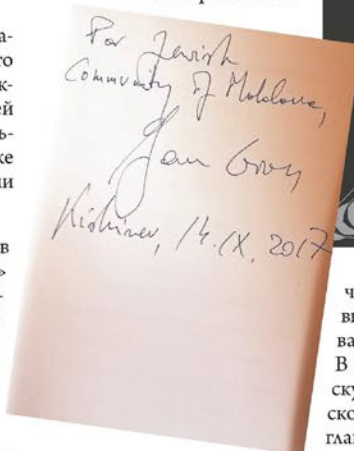 а-
то
к-
ей
ь-
же
ли
в
»
For Jewish
Community of Moldova,
Jan
Kishinev, 14.IX, 2017
ч
ва
В
ску
ско